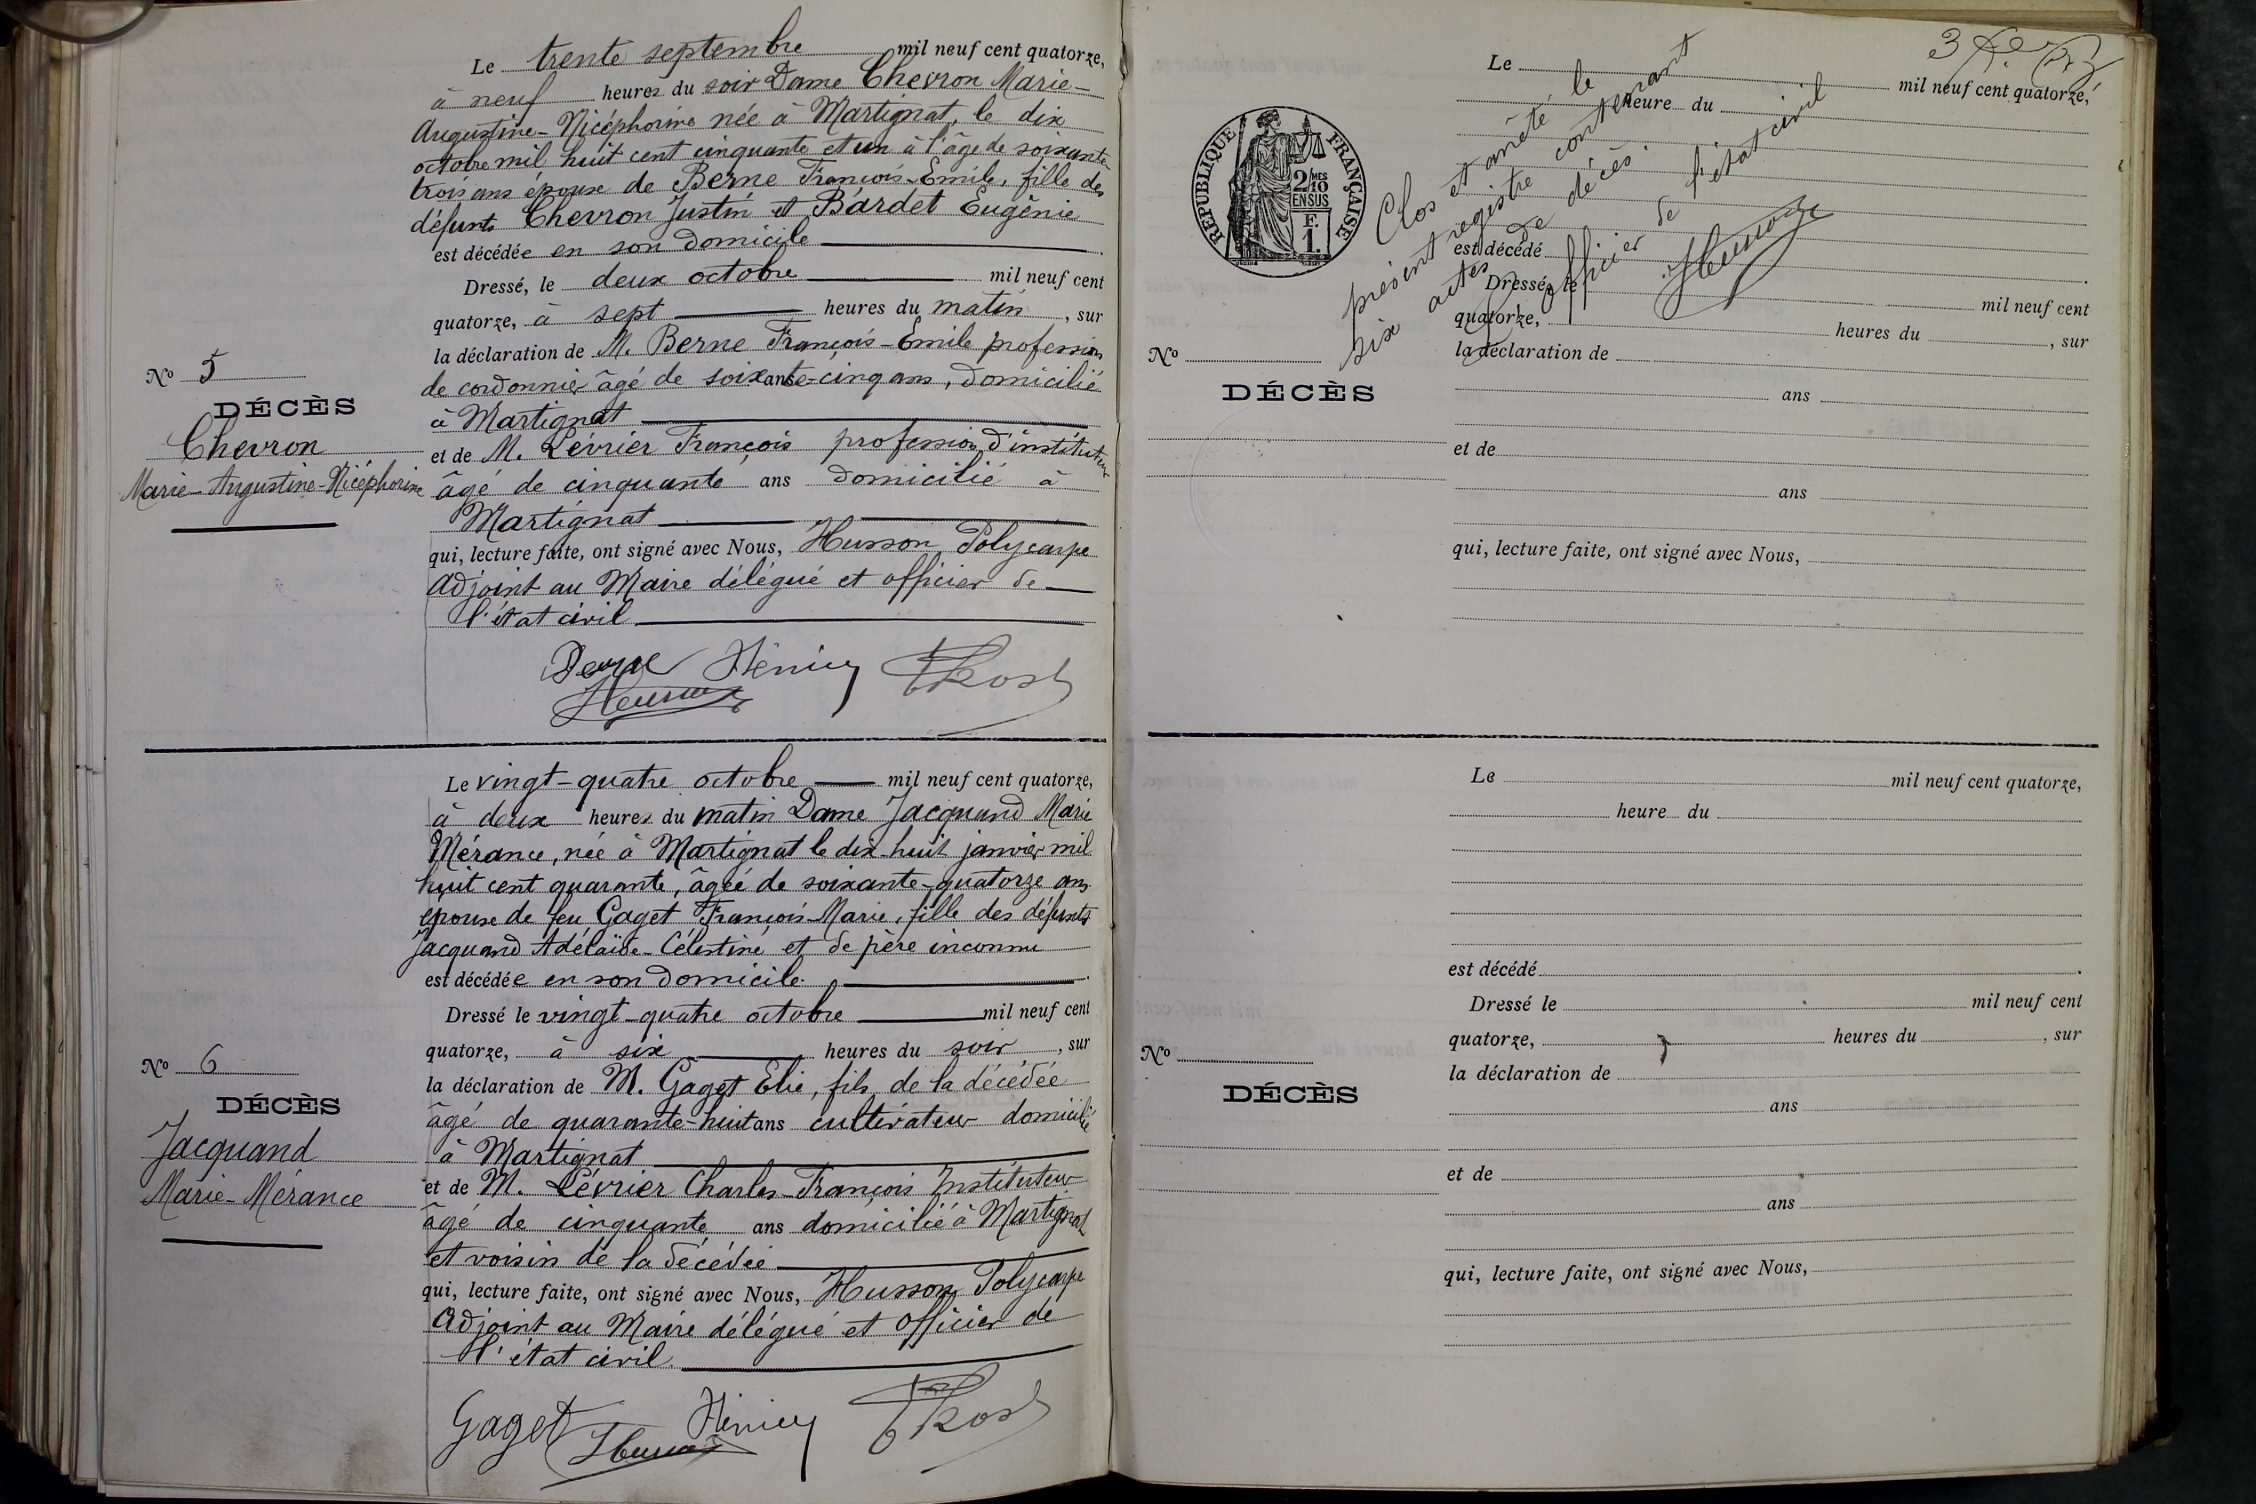 Le trente septembre mil neuf cent quatorze,
à neuf heures du soir Dame Chevron Marie-
Augustine-Nicéphorine née à Martignat, le dix
octobre mil huit cent cinquante et un à l'âge de soixante
trois ans épouse de Berne François-Emile, fille des
défunts Chevron Justin et Bardet Eugénie
est décédée en son domicile
Dressé, le deux octobre mil neuf cent
quatorze, à sept heures du matin, sur
la déclaration de M. Berne François-Emile profession
de cordonnier âgé de soixante-cinq ans, domicilié
à Martignat
et de M. Lévrier François profession d'instituteur
âgé de cinquante ans domicilié à
Martignat
qui, lecture faite, ont signé avec Nous, Husson Polycarpe
adjoint au Maire délégué et officier de
l'état civil
No 5
DÉCÈS
Chevron
Marie-Augustine-Nicéphorine
Le vingt-quatre octobre mil neuf cent quatorze,
à deux heures du matin Dame Jacquand Marie
Mérance, née à Martignat le dix-huit janvier mil
huit cent quarante, âgée de soixante-quatorze ans
épouse de feu Gaget François-Marie, fille des défunts
Jacquand Adélaïde-Célestine, et de père inconnu
est décédée en son domicile.
Dressé le vingt-quatre octobre mil neuf cent
quatorze, à six heures du soir, sur
la déclaration de M. Gaget Elie, fils de la décédée
âgé de quarante-huit ans cultivateur domicilié
à Martignat
et de M. Lévrier Charles-François Instituteur
âgé de cinquante ans domicilié à Martignat
et voisin de la décédée
qui, lecture faite, ont signé avec Nous, Husson Polycarpe
adjoint au Maire délégué et officier de
l'état civil.
Gaget
No 6
DÉCÈS
Jacquand
Marie-Mérance
Clos et arrêté le
présent registre contenant
six actes de décès.
L'officier de l'état civil
RÉPUBLIQUE FRANÇAISE
2/10 MES
EN SUS
F.
1.
Le mil neuf cent quatorze,
heure du
est décédé
Dressé, le mil neuf cent
quatorze, heures du , sur
la déclaration de
ans
et de
ans
qui, lecture faite, ont signé avec Nous,
No
DÉCÈS
Le mil neuf cent quatorze,
heure du
est décédé
Dressé le mil neuf cent
quatorze, heures du , sur
la déclaration de
ans
et de
ans
qui, lecture faite, ont signé avec Nous,
No
DÉCÈS